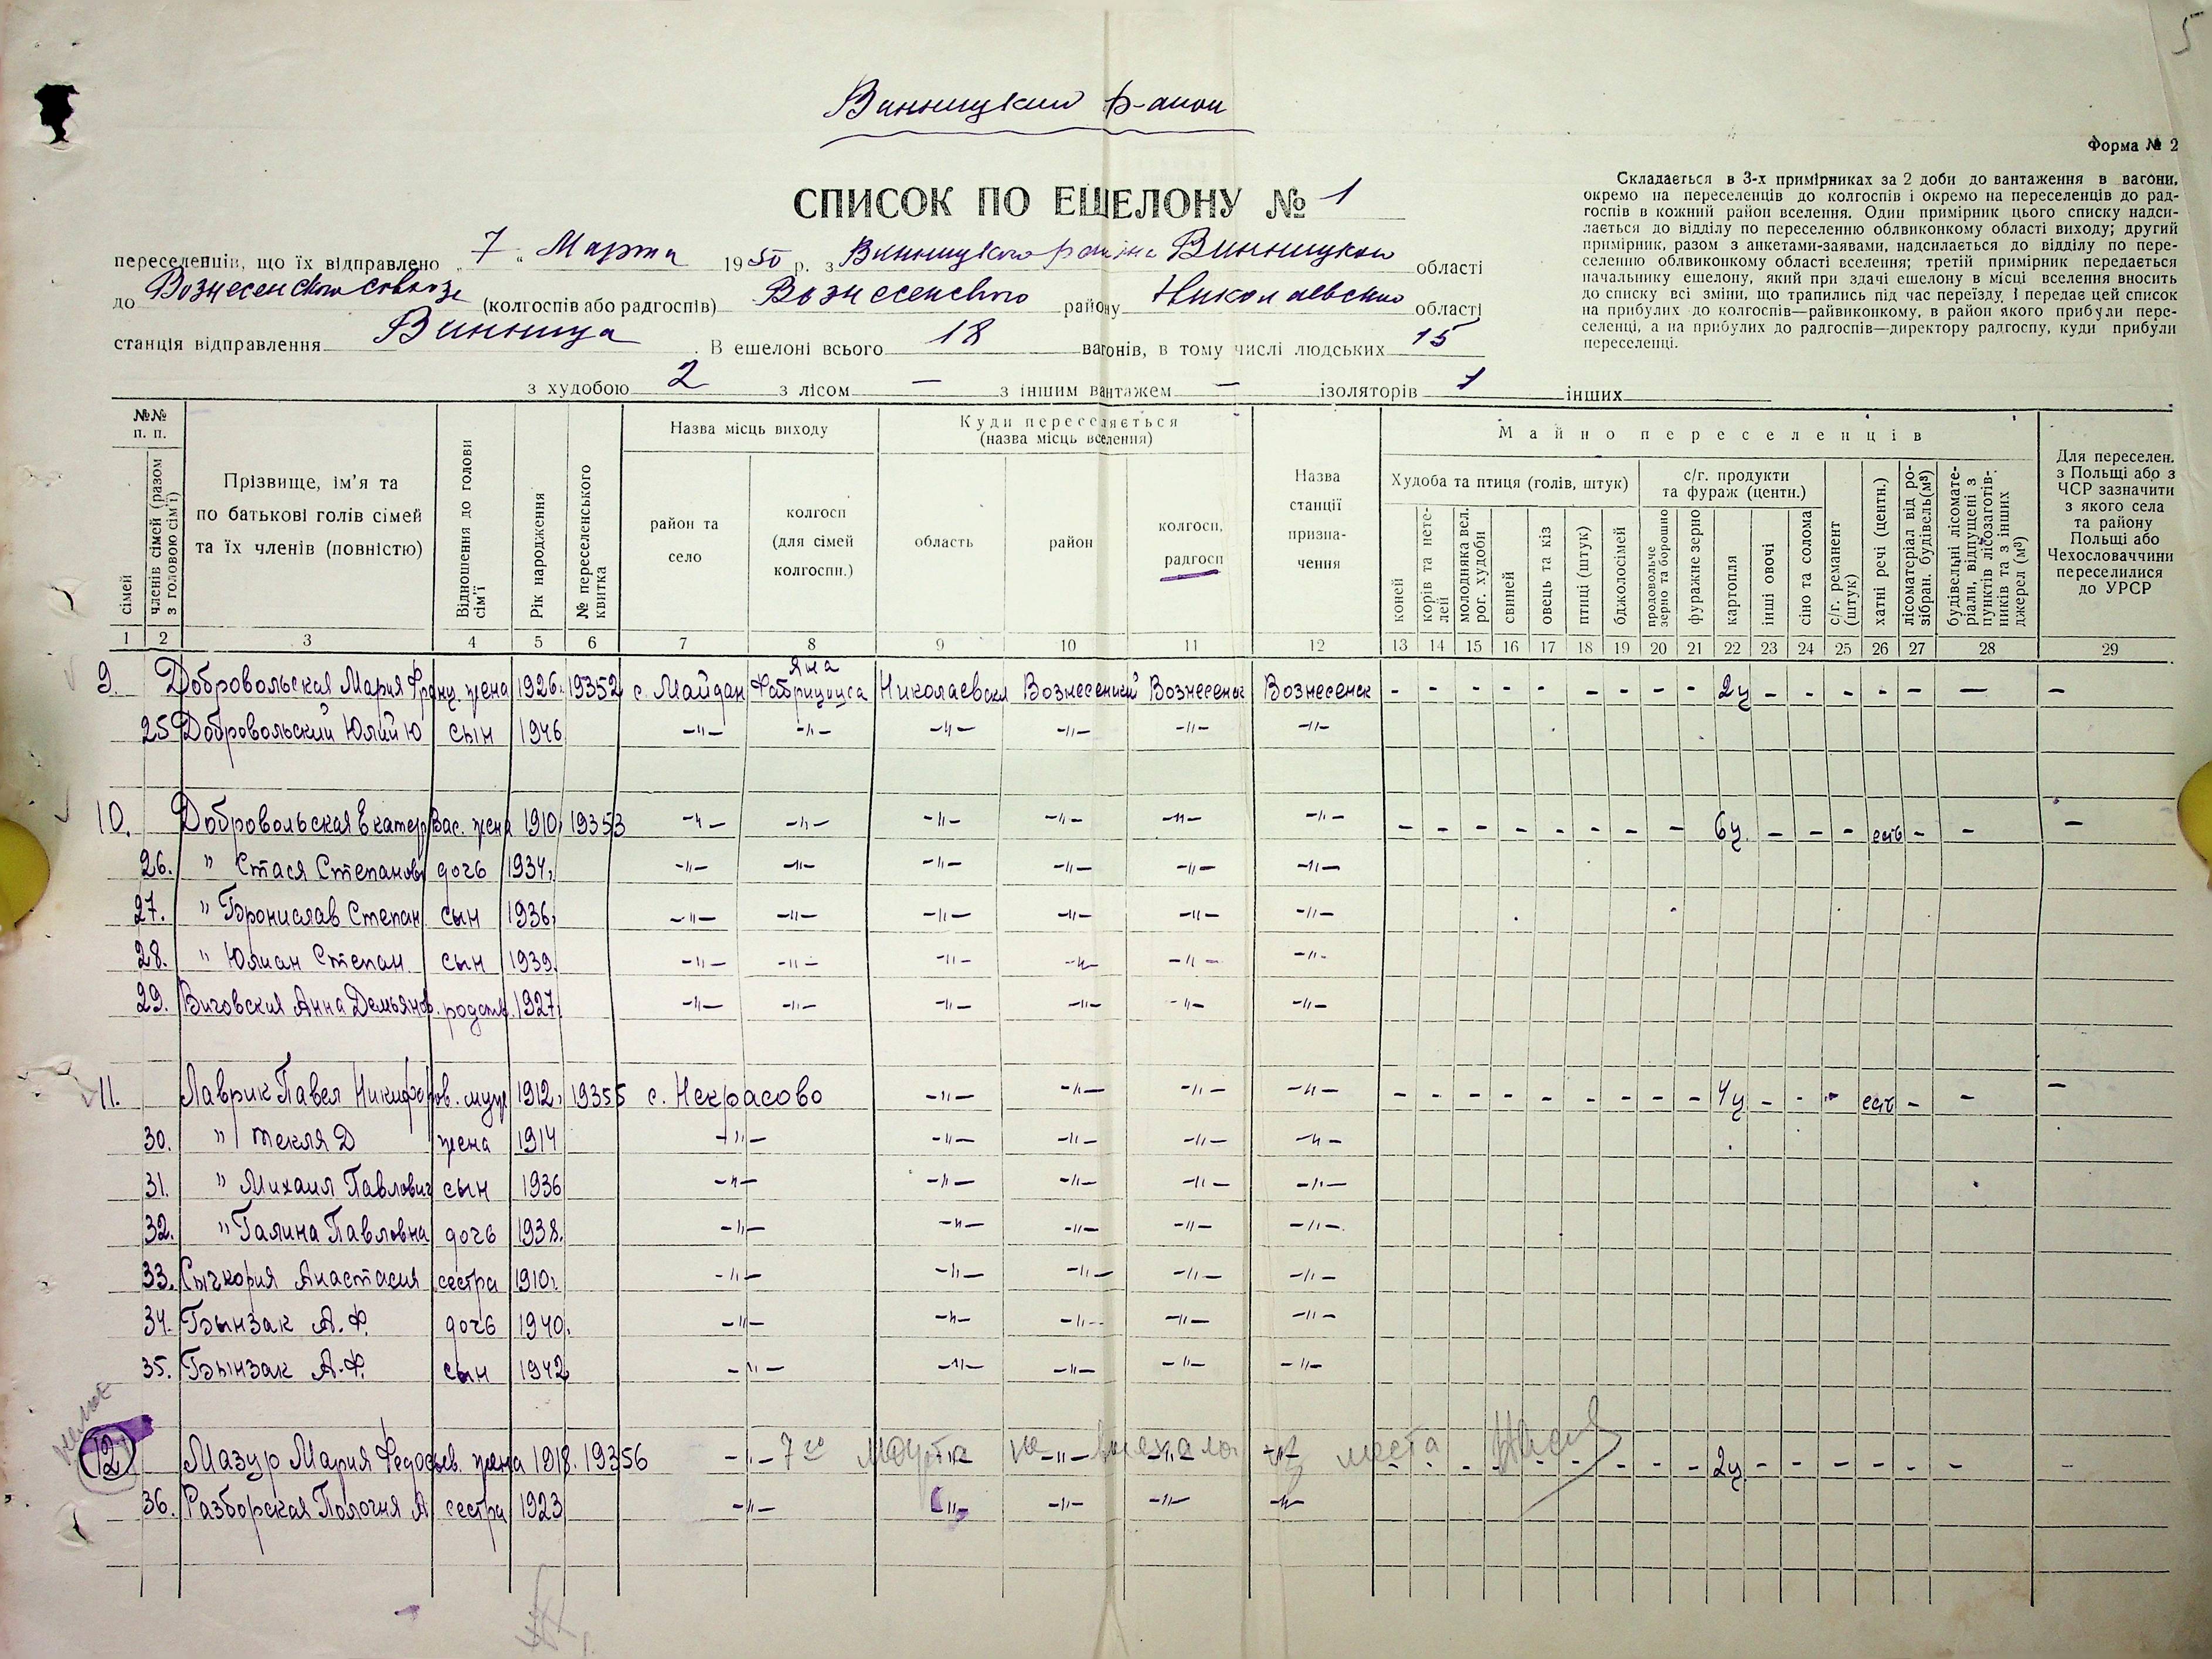 5
Винницкий р-анон
Форма № 2
СПИСОК ПО ЕШЕЛОНУ № 1
Складається в 3-х примірниках за 2 доби до вантаження в вагони,
окремо на переселенців до колгоспів і окремо на переселенців до рад-
госпів в кожний район вселення. Один примірник цього списку надси-
лається до відділу по переселенню облвиконкому області виходу; другий
примірник, разом з анкетами-заявами, надсилається до відділу по пере-
селенню облвиконкому області вселення; третій примірник передається
начальнику ешелону, який при здачі ешелону в місці вселення вносить
до списку всі зміни, що трапились під час переїзду, і передає цей список
на прибулих до колгоспів—райвиконкому, в район якого прибули пере-
селенці, а на прибулих до радгоспів—директору радгоспу, куди прибули
переселенці.
переселенців, що їх відправлено „ 7 " Марта 1950 р. з Винницкого района Винницкой області
до Вознесенского совхоза (колгоспів або радгоспів) Вознесенского району Николаевской області
станція відправлення Винница В ешелоні всього 18 вагонів, в тому числі людських 15
з худобою 2 з лісом — з іншим вантажем — ізоляторів 1 інших
№№ п. п.
сімей
членів сімей (разом з головою сім'ї)
Прізвище, ім'я та по батькові голів сімей та їх членів (повністю)
Відношення до голови сім'ї
Рік народження
№ переселенського квитка
Назва місць виходу
район та село
колгосп (для сімей колгоспн.)
Куди переселяється (назва місць вселення)
область
район
колгосп, радгосп
Назва станції призна-чення
Майно переселенців
Худоба та птиця (голів, штук)
коней
корів та нете-лей
молодняка вел. рог. худоби
свиней
овець та кіз
птиці (штук)
бджолосімей
с/г. продукти та фураж (центн.)
продовольче зерно та борошно
фуражне зерно
картопля
інші овочі
сіно та солома
с/г. реманент (штук)
хатні речі (центн.)
лісоматеріал від ро-зібран. будівель(м³)
будівельні лісомате-ріали, відпущені з пунктів лісозаготів-ників та з інших джерел (м³)
Для переселен. з Польщі або з ЧСР зазначити з якого села та району Польщі або Чехословаччини переселилися до УРСР
1 2 3 4 5 6 7 8 9 10 11 12 13 14 15 16 17 18 19 20 21 22 23 24 25 26 27 28 29
9. Добровольская Мария Франц. жена 1926. 19352 с. Майдан Яна Фабрициуса Николаевская Вознесенский Вознесенск Вознесенск - - - - - - - - - 2ц - - - - - — —
25 Добровольский Юлий Ю сын 1946 -"- -"- -"- -"- -"- -"-
10. Добровольская Екатер Вас. жена 1910, 19353 -"- -"- -"- -"- -"- -"- - - - - - - - - - 6ц. - - - есть - - —
26. " Стася Степанов дочь 1934, -"- -"- -"- -"- -"- -"-
27. " Бронислав Степан сын 1936, -"- -"- -"- -"- -"- -"-
28. " Юлиан Степан. сын 1939. -"- -"- -"- -"- -"- -"-
29. Виговския Анна Демьянов. родств. 1927, -"- -"- -"- -"- -"- -"-
11. Лаврик Павел Никифоров. муж 1912, 19355 с. Некрасово -"- -"- -"- -"- - - - - - - - - - 4ц - - - есть - - —
30. " Текля Д жена 1914 -"- -"- -"- -"- -"-
31. " Михаил Павлович сын 1936 -"- -"- -"- -"- -"-
32. " Галина Павловна дочь 1938. -"- -"- -"- -"- -"-
33. Сычкория Анастасия сестра 1910, -"- -"- -"- -"- -"-
34. Бынзак А.Ф. дочь 1940. -"- -"- -"- -"- -"-
35. Бынзак А.Ф. сын 1942 -"- -"- -"- -"- -"-
12 Мазур Мария Федосьев. жена 1918. 19356 -"- -"- -"- -"- -"- - - - - - - - - - 2ц - - - - - - -
7го марта не выехала из места
36. Разборская Пологня А сестра 1923 -"- -"- -"- -"- -"-